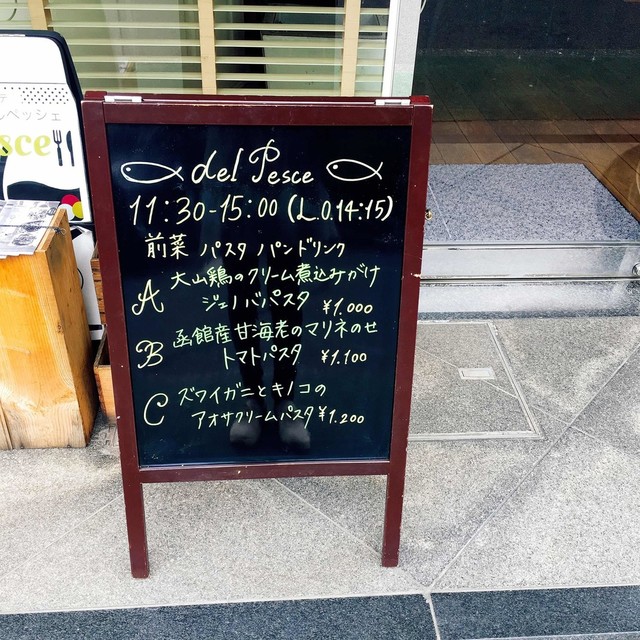 ペッシェ
sce
del Pesce
11:30-15:00 (L.O.14:15)
前菜 パスタ パン ドリンク
A 大山鶏のクリーム煮込みがけ
ジェノバパスタ ¥1.000
B 函館産甘海老のマリネのせ
トマトパスタ ¥1.100
C ズワイガニとキノコの
アオサクリームパスタ ¥1.200